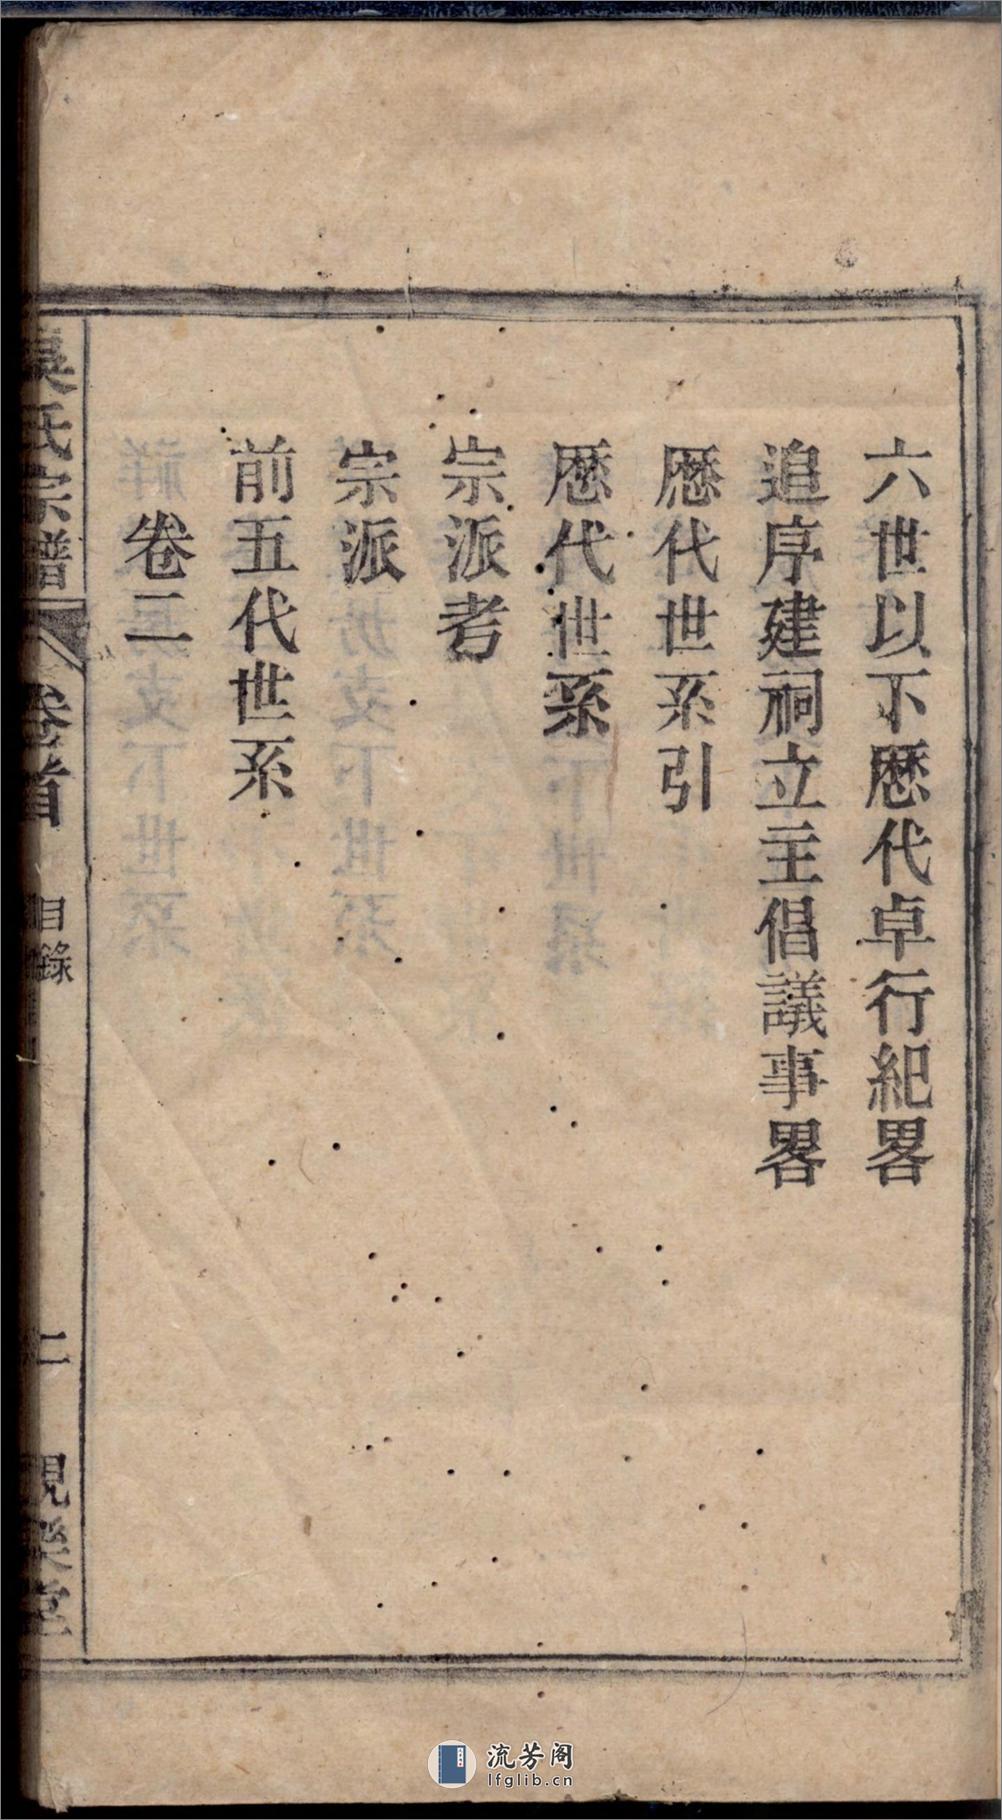 六世以下歷代卓行紀畧
追序建祠立主倡議事畧
歷代世系引
歷代世系
宗派考
宗派
前五代世系
卷二
吳氏宗譜
卷首
目錄
二
堂
流芳阁
lfglib.cn